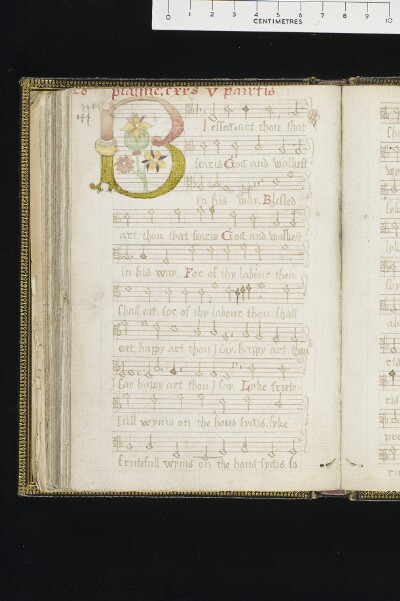 0 1 2 3 4 5 6 7 8 9 10
CENTIMETRES
psalme, cxxs V pairtis
Blessed art thou that
fearis God and walkest
in his way. Blessed
art thou that fearis God and walkest
in his way. For of thy labour thou
shall eat, for of thy labour thou shall
eat, happy art thou I say, happy art thou
I say happy art thou I say. Lyke frute-
full wynis on the hous sydis, lyke
frutefull wynis on the hous sydis, so